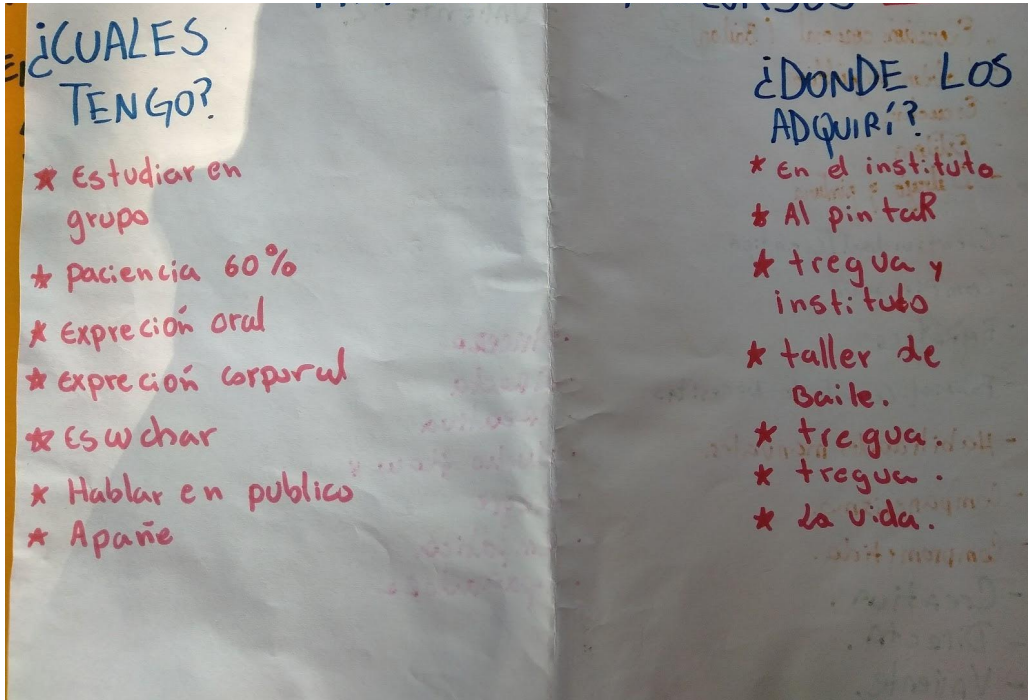 ¿CUALES
TENGO?
* Estudiar en
grupo
* paciencia 60%
* Expreción oral
* expreción corporal
* Escuchar
* Hablar en publico
* Apañe
¿DONDE LOS
ADQUIRÍ?
* En el instituto
* Al pintaR
* tregua y
instituto
* taller de
Baile.
* tregua.
* tregua.
* La vida.